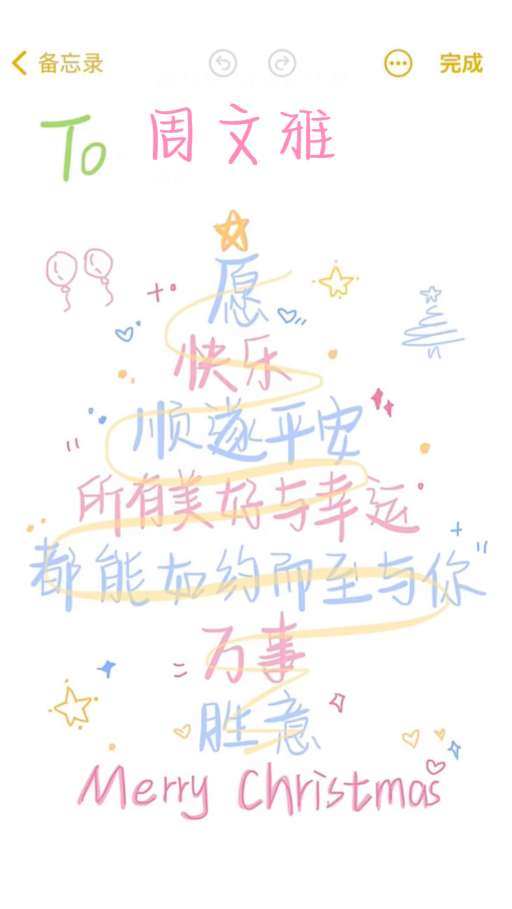 备忘录 完成
To 周文雅
愿
快乐
顺遂平安
所有美好与幸运
都能如约而至与你
万事
胜意
Merry Christmas